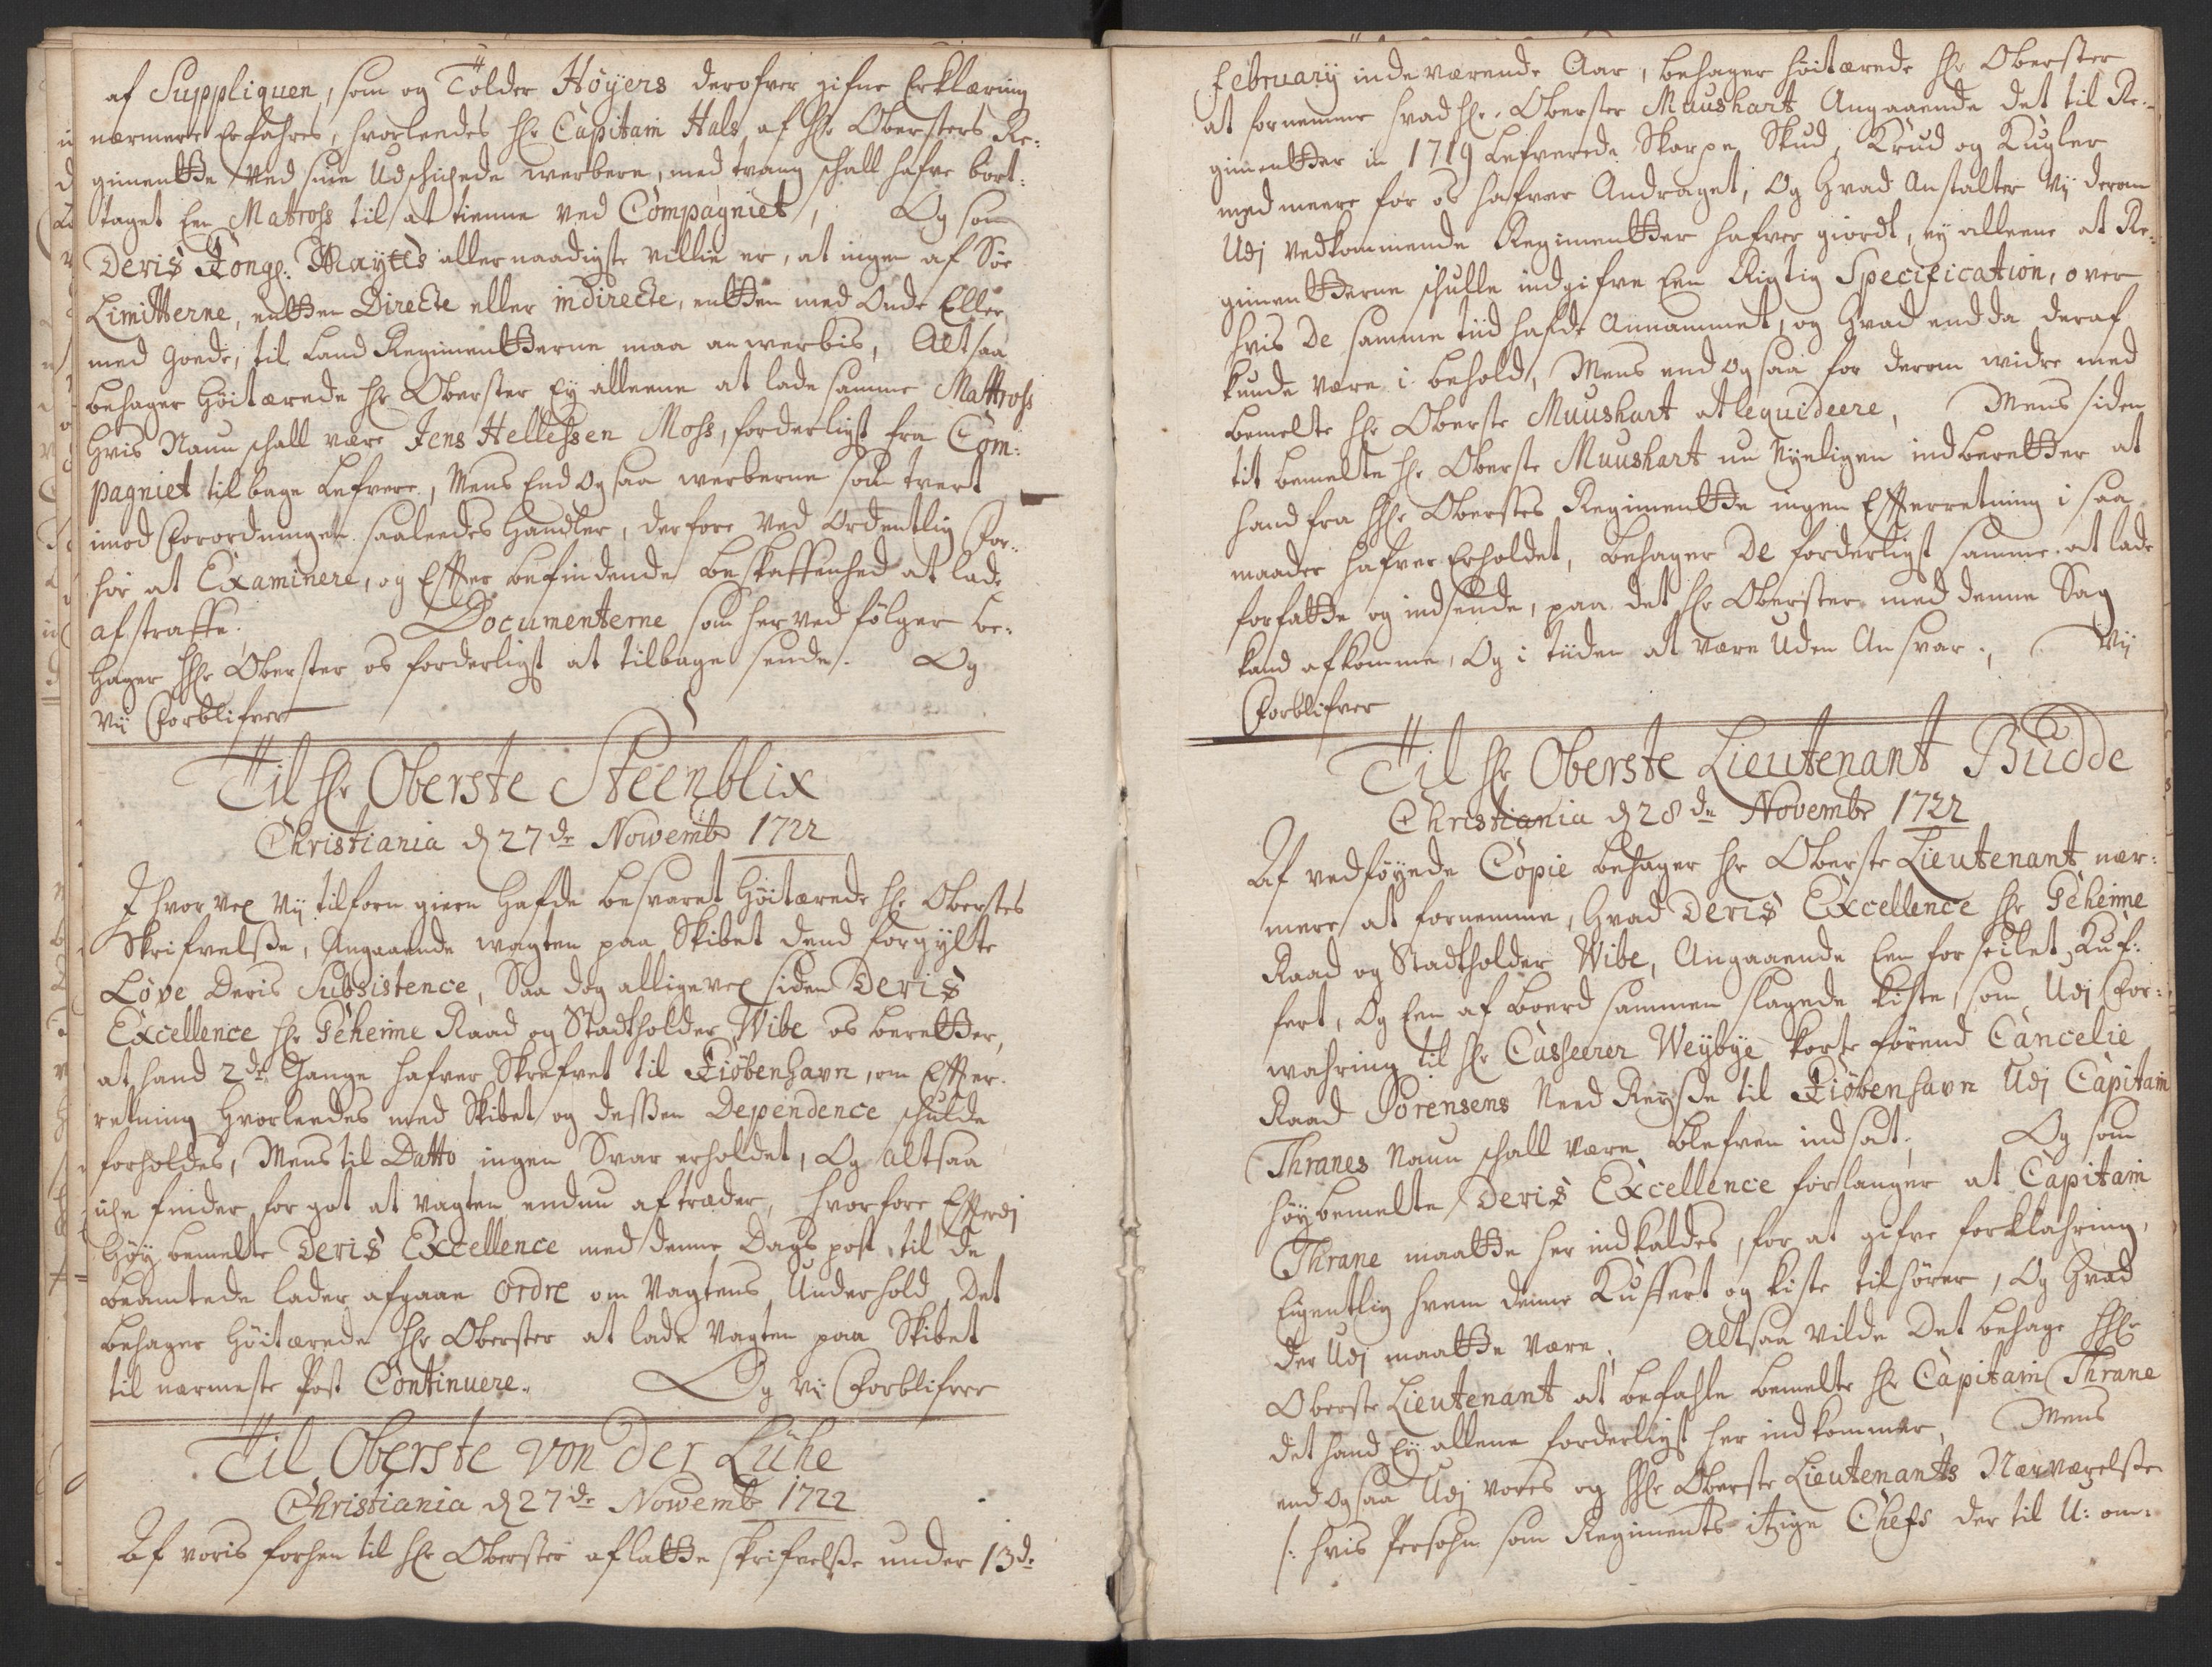 af Suppliquen, som og Tolder Höÿers derofver gifne Erklæring
nærmere Erfahres, hvorleedes Hr Capitain Hals af Hr Obersters Re-
gimentte ved sine Udschichede werbere, med trang schall hafve bort-
taget Een Matrohs til at tienne ved Compagniet, Og som
Deris Kongl: Maÿtts allernaadigste villie er, at ingen af Söe
Limitterne, entten Directe eller indirecte, entten med Onde Eller
med goede, til Land Regimentterne maa an werbis, Altsaa
behager Höitærede Hr Oberster Eÿ alleene at lade samme Mattrohs
Hvis Naun schall være Jens Hellessen Mohs, forderligst fra Com-
pagniet tilbage Lefvere, Mens End og saa werberne som tvert
imod Forordningen saaleedes Handler, derfore ved Ordentlig For-
hör at Examinere, og Effter befindende beskaffenhed at lade
afstraffe. Documenterne som herved fölger be-
hager Hr Oberster os forderligst at tilbage sende. Og
vii Forblifver
Til Hr Oberste Steenblix
Christiania d 27de Nowembr 1722
I hvor vel vij tilforn giern hafde besvaret Höitærede Hr Oberstes
Skrifvelsse, Angaaende wagten paa Skibet dend forgÿlte
Löve Deris Subsistence, Saa dog alligevel siden Deris
Excellence Hr Geheime Raad og Stadtholder Wibe os beretter,
at hand 2de Gange hafver Skrefvet til Kiöbenhavn, om Effter-
retning hvorleedes med Skibet og dessen Dependence schulde
forholdes, Mens til Datto ingen Svar erholdet, Og altsaa
iche finder for got at vagten endnu aftræder, hvorfore Efftterdj
Höÿbemelte Deris Excellence med denne Dags post til de
beamtede lader afgaae ordre om Vagtens Underhold, Det
behager Höitærede Hr Oberster at lade Vagten paa Skibet
til nærmeste Post Continuere. Og vij Forblifver
Til Oberste von der Lühe
Christiania d 27de Nowemb 1722
Af voris forhen til Hr Oberster aflatte skrifvelsse under 13de
Februarÿ indeværende Aar, behager höitærede Hr Oberster
at fornemme hvad Hr. Oberster Muushart Angaaende det til Re-
gimentter in 1719 Lefverede Skarpe Skud, Krud og Kugler
med meere for os hafver Andraget, Og Hvad Anstalter Vij derom
Udj Vedkommende Regimentter hafver giordt, eÿ alleene at Re-
gimentterne schulle indgifve Een Rigtig Specification, over
hvis De samme tiid hafde Annammet, og Hvad endda deraf
kunde være i behold, Mens end og saa for derom widre med
bemelte Hr Oberste Muushart at lequideere, Mens siden
tit bemelte Hr Oberste Muushart nu nÿeligen indberetter at
hand fra Hr Oberstes Regimentte ingen Effterretning i saa
maader hafver Erholdet, behager De forderligst samme at lade
forfatte og indsende, paa det Hr Oberster med denne Sag
kand afkomme, Og i tiiden at være Uden Ansvar., Vij
Forblifver
Til Hr Oberste Lieutenant Budde
Christiania d 28de Novembr 1722
Af vedföÿede Copie behager Hr Oberste Lieutenant nær-
mere at fornemme, Hvad Deris Excellence Hr Geheime
Raad og Stadtholder Wibe, Angaaende Een forseilet Kuf-
fert, Og Een af boerd sammen slagede kiste, som Udj For-
wahring til Hr Casserer Weÿbÿe korte förend Cancelie
Raad Sörensens Need Reÿse til Kiöbenhavn Udj Capitain
Thranes Naun schall være blefven indsat; Og som
höÿbemelte Deris Excellence forlanger at Capitain
Thrane maatte her indkaldes, for at gifve forklahring,
Eigentlig hvem denne Kuffert og kiste tilhörer, Og Hvad
der Udj maatte være; Altsaa vilde Det behage Hr
Oberste Lieutenant at befahle bemelte Hr Capitain Thrane
det hand Eÿ allene forderligst her indkommer, Mens
end og saa Udj vores og Hr Oberste Lieutenants Nærværelse
/: hvis Persohn som Regiments itzige Chefs der til U: om-